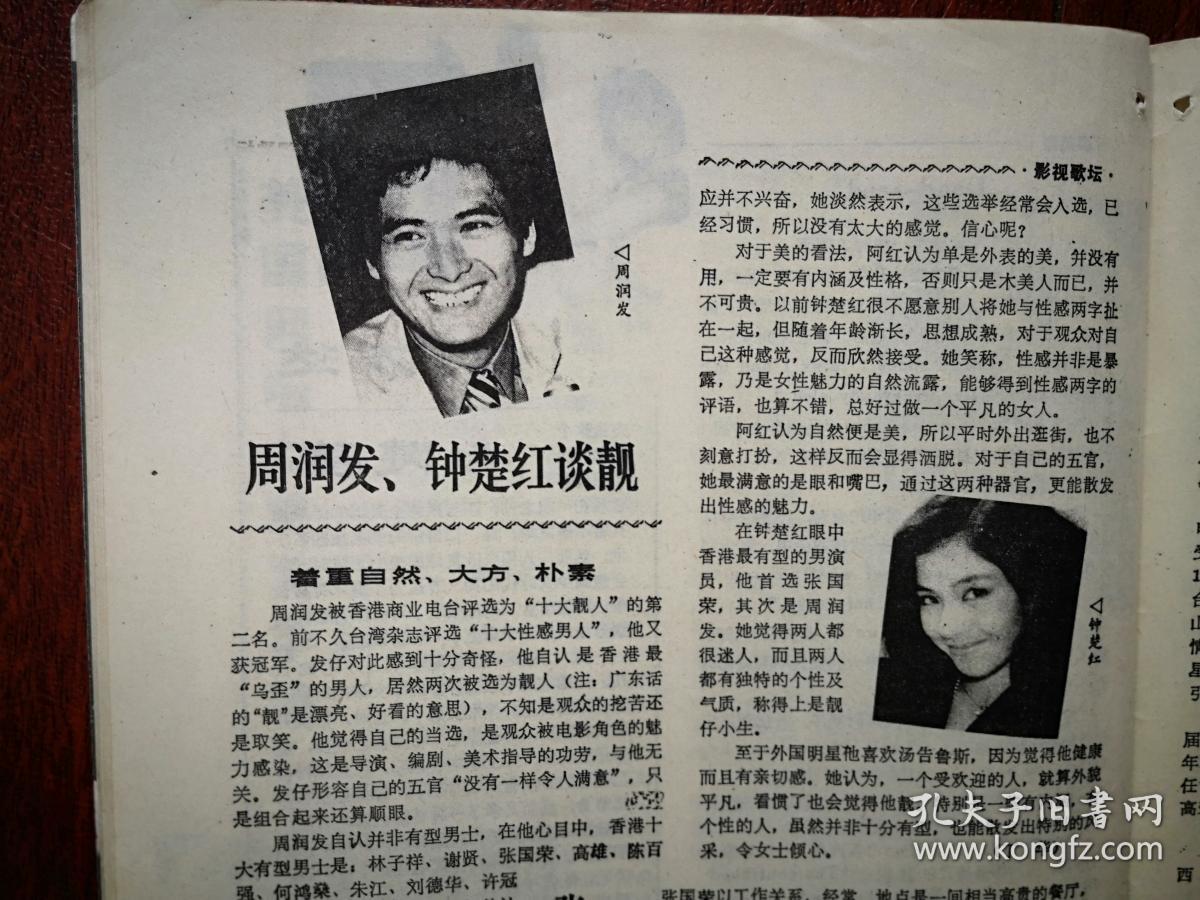 ◁周润发
周润发、钟楚红谈靓
着重自然、大方、朴素
周润发被香港商业电台评选为“十大靓人”的第
二名。前不久台湾杂志评选“十大性感男人”，他又
获冠军。发仔对此感到十分奇怪，他自认是香港最
“乌歪”的男人，居然两次被选为靓人（注：广东话
的“靓”是漂亮、好看的意思），不知是观众的挖苦还
是取笑。他觉得自己的当选，是观众被电影角色的魅
力感染，这是导演、编剧、美术指导的功劳，与他无
关。发仔形容自己的五官“没有一样令人满意”，只
是组合起来还算顺眼。
周润发自认并非有型男士，在他心目中，香港十
大有型男士是：林子祥、谢贤、张国荣、高雄、陈百
强、何鸿燊、朱江、刘德华、许冠
·影视歌坛·
应并不兴奋，她淡然表示，这些选举经常会入选，已
经习惯，所以没有太大的感觉。信心呢？
对于美的看法，阿红认为单是外表的美，并没有
用，一定要有内涵及性格，否则只是木美人而已，并
不可贵。以前钟楚红很不愿意别人将她与性感两字扯
在一起，但随着年龄渐长，思想成熟，对于观众对自
己这种感觉，反而欣然接受。她笑称，性感并非是暴
露，乃是女性魅力的自然流露，能够得到性感两字的
评语，也算不错，总好过做一个平凡的女人。
阿红认为自然便是美，所以平时外出逛街，也不
刻意打扮，这样反而会显得洒脱。对于自己的五官，
她最满意的是眼和嘴巴，通过这两种器官，更能散发
出性感的魅力。
在钟楚红眼中
香港最有型的男演
员，他首选张国
荣，其次是周润
发。她觉得两人都
很迷人，而且两人
都有独特的个性及
气质，称得上是靓
仔小生。
◁钟楚红
至于外国明星他喜欢汤告鲁斯，因为觉得他健康
而且有亲切感。她认为，一个受欢迎的人，就算外貌
平凡，看惯了也会觉得他靓，特别是一
个性的人，虽然并非十分有型，也能散发出特别的风
采，令女士倾心。
张国荣以工作关系，经常 地点是一间相当高贵的餐厅，
孔夫子旧书网
www.kongfz.com